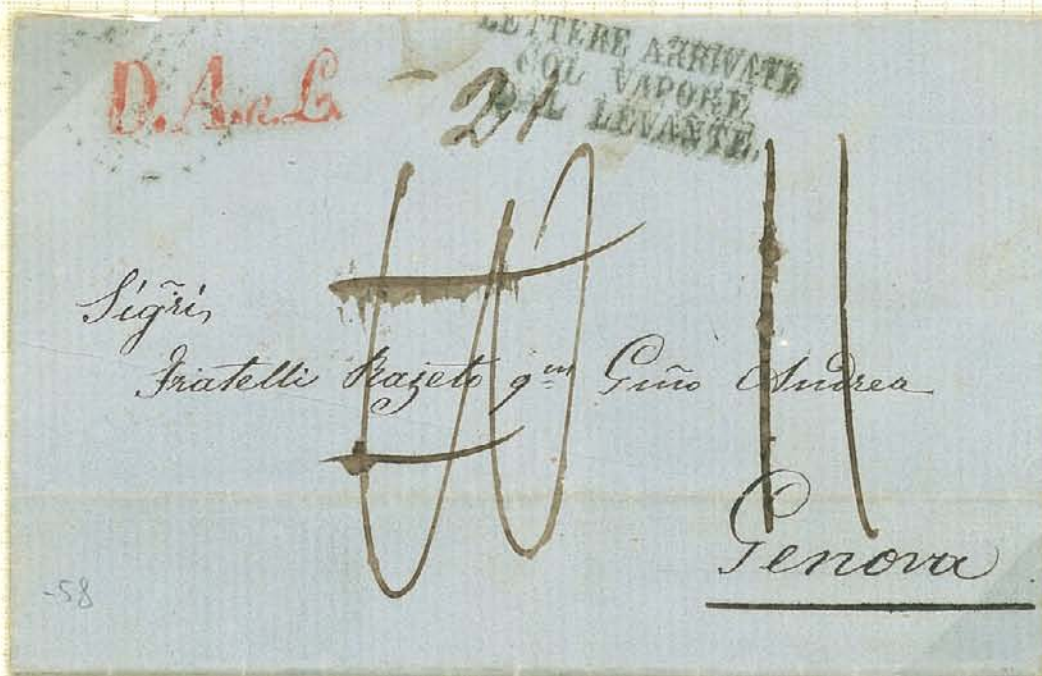 D. A. in L.
LETTERE ARRIVATE
COL VAPORE
DAL LEVANTE.
21
11
Sigri,
Fratelli Razeto qm Gino Andrea
Genova
-58